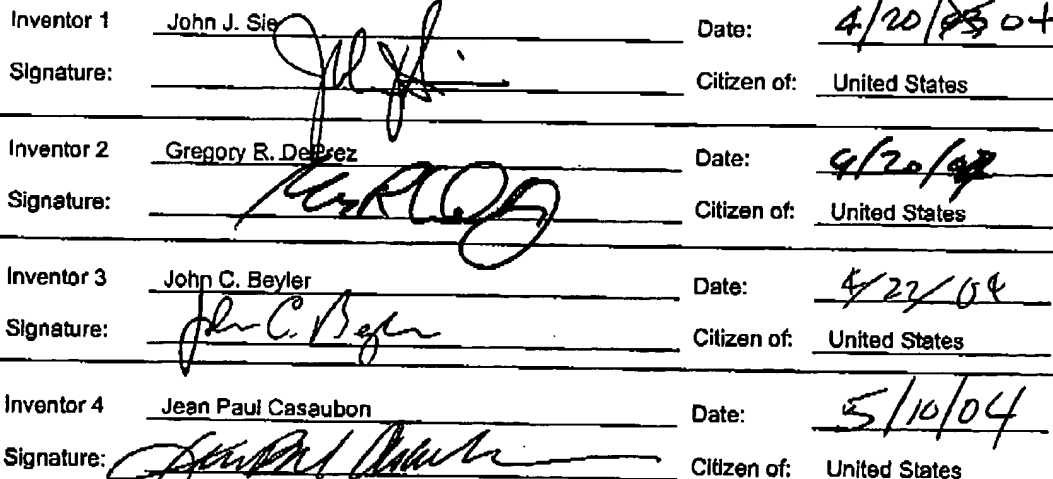 Inventor 1 John J. Sie Date: 4/20/ 04
Signature: Citizen of: United States
Inventor 2 Gregory R. DePrez Date: 4/20/
Signature: Citizen of: United States
Inventor 3 John C. Beyler Date: 4/22/04
Signature: John C. Beyler Citizen of: United States
Inventor 4 Jean Paul Casaubon Date: 5/10/04
Signature: Citizen of: United States